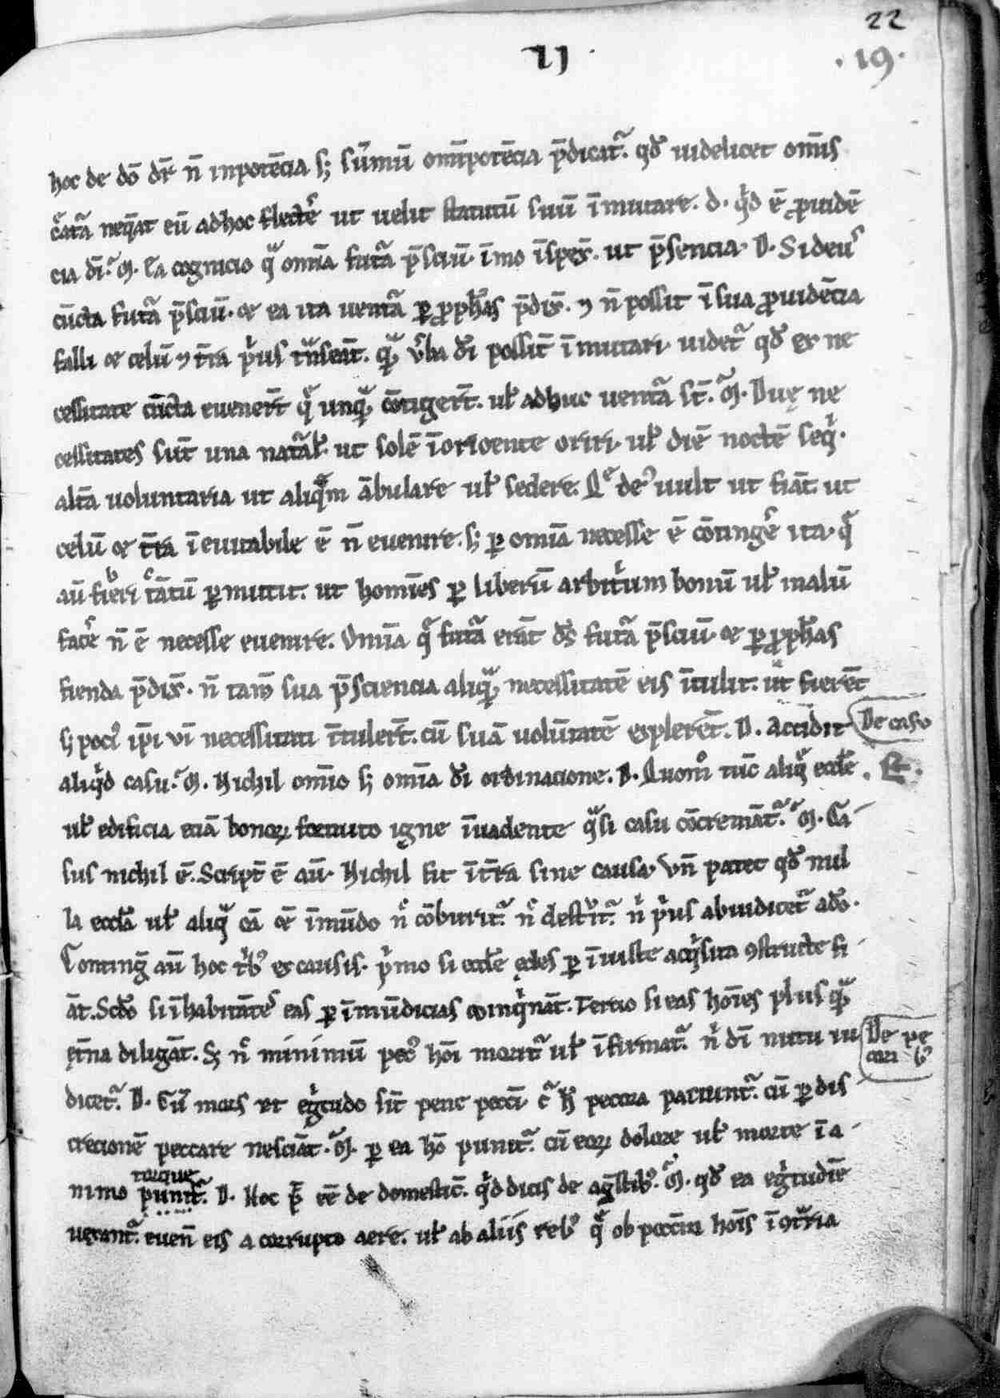 22
II · 19 ·
hoc de dō dr̄ n̄ inpotēcia sꝫ sūmū omīpotēcia p̄dicat᷒. qđ uidelicet omīs
c̄ata neq̄at eū ad hoc flect̄e ut uelit statutū suū īmutare. d. qⁱd ē ꝓuidē
cia dī. M̄. Ea cognicio qᵃ omīa futᵃa p̄sciū. īmo īspex̄. ut p̄sencia. D. Si deus᷒
cūcta futᵃa p̄sciū. et ea ita uentᵃa ꝑ ꝓph̄as p̄dix̄. ⁊ n̄ possit ī sua ꝓuidēcia
falli et celū ⁊ t̄ra pⁱus tᵃnseāt. qᵃꝫ v̄ba dī possīt īmutari. uidet᷒ qđ ex ne
cessitate cūcta euenerīt qᵃ unqᵃꝫ cōtigerīt. ut̄ adhuc uentᵃa st̄. M̄. Duę ne
cessitates sūt una natᵃal̄. ut solē ī oriente oriri. ut̄ diē noctē seqⁱ.
altᵃa uoluntaria ut aliqᵃm ābulare ut̄ sedere. Qᵉ de᷒ uult ut fiāt. ut
celū et t̄ra īeuitabile ē n̄ euenire. sꝫ ꝑ omīa necesse ē cōtingē ita. qᵃ
aū fieri tᵃtū ꝑmittit. ut homīes ꝑ liberū arbitⁱum bonū ut̄ malū
facē n̄ ē necesse euenire. Omīa qᵃ futᵃa erāt dꝰ futᵃa p̄sciū. et ꝑ ꝓph̄as
fienda p̄dix̄. n̄ tam̄ sua p̄sciencia aliqᵃꝫ necessitatē eis ītulit. ut fierēt
sꝫ poci᷒ ip̄i uī necessitati ītulerīt. cū suā volūtatē explerēt. D. Accidit
De casu
aliqⁱd casu. M̄. Nichil omīo sꝫ omīa dī ordinacione. D. Quom̊ tūc aliqᵃ eccl̄e
ut̄ edificia etiā bonoꝝ fortuito igne īuadente qᵃsi casu cōcremāt᷒. M̄. Ca
sus nichil ē. Script̄ ē aū. Nichil fit ī t̄ra sine causa. vn̄ patet qđ nul
la eccl̄a ut̄ aliqᵃ cā et̄ ī mūdo n̄ cōburit᷒. n̄ destᵘit᷒. nⁱ pⁱus abiudicet᷒ a dō.
Conting̅ aū hoc tⁱb᷒ ex causis. pⁱmo si eccl̄e ędes ꝑ īiuste acqⁱsita ꝯstructe fi
āt. Scdō si īhabitātes᷒ eas ꝑ īmūdicias coinqⁱnāt. Tercio si eas hoīes plus qᵃꝫ
et̄na diligāt. Sꝫ n̄ minimū pec᷒ hoī morit᷒ ut̄ īfirmat᷒. nⁱ dī nutu iu
De pe
cori b᷒
dicet᷒. D. Cū mors et egⁱtudo sīt pene pecci. cᵃ h̄ pecora paciunt᷒. cū ꝑ dis
crecionē peccare nesciāt. M̄. ꝑ ea hō punit᷒. cū eoꝝ dolore ut̄ morte ī a
torque
nimo punit᷒. D. Hoc p̄t eē de domestic̄. qⁱd dicis de ag̅stib᷒. M̄. qđ ea egⁱtudīe
uexant᷒. euen̄ eis a corrupto aere. ut̄ ab aliis reb᷒ qᵃ ob pecc̄m hoīs ī ꝯtᵃria